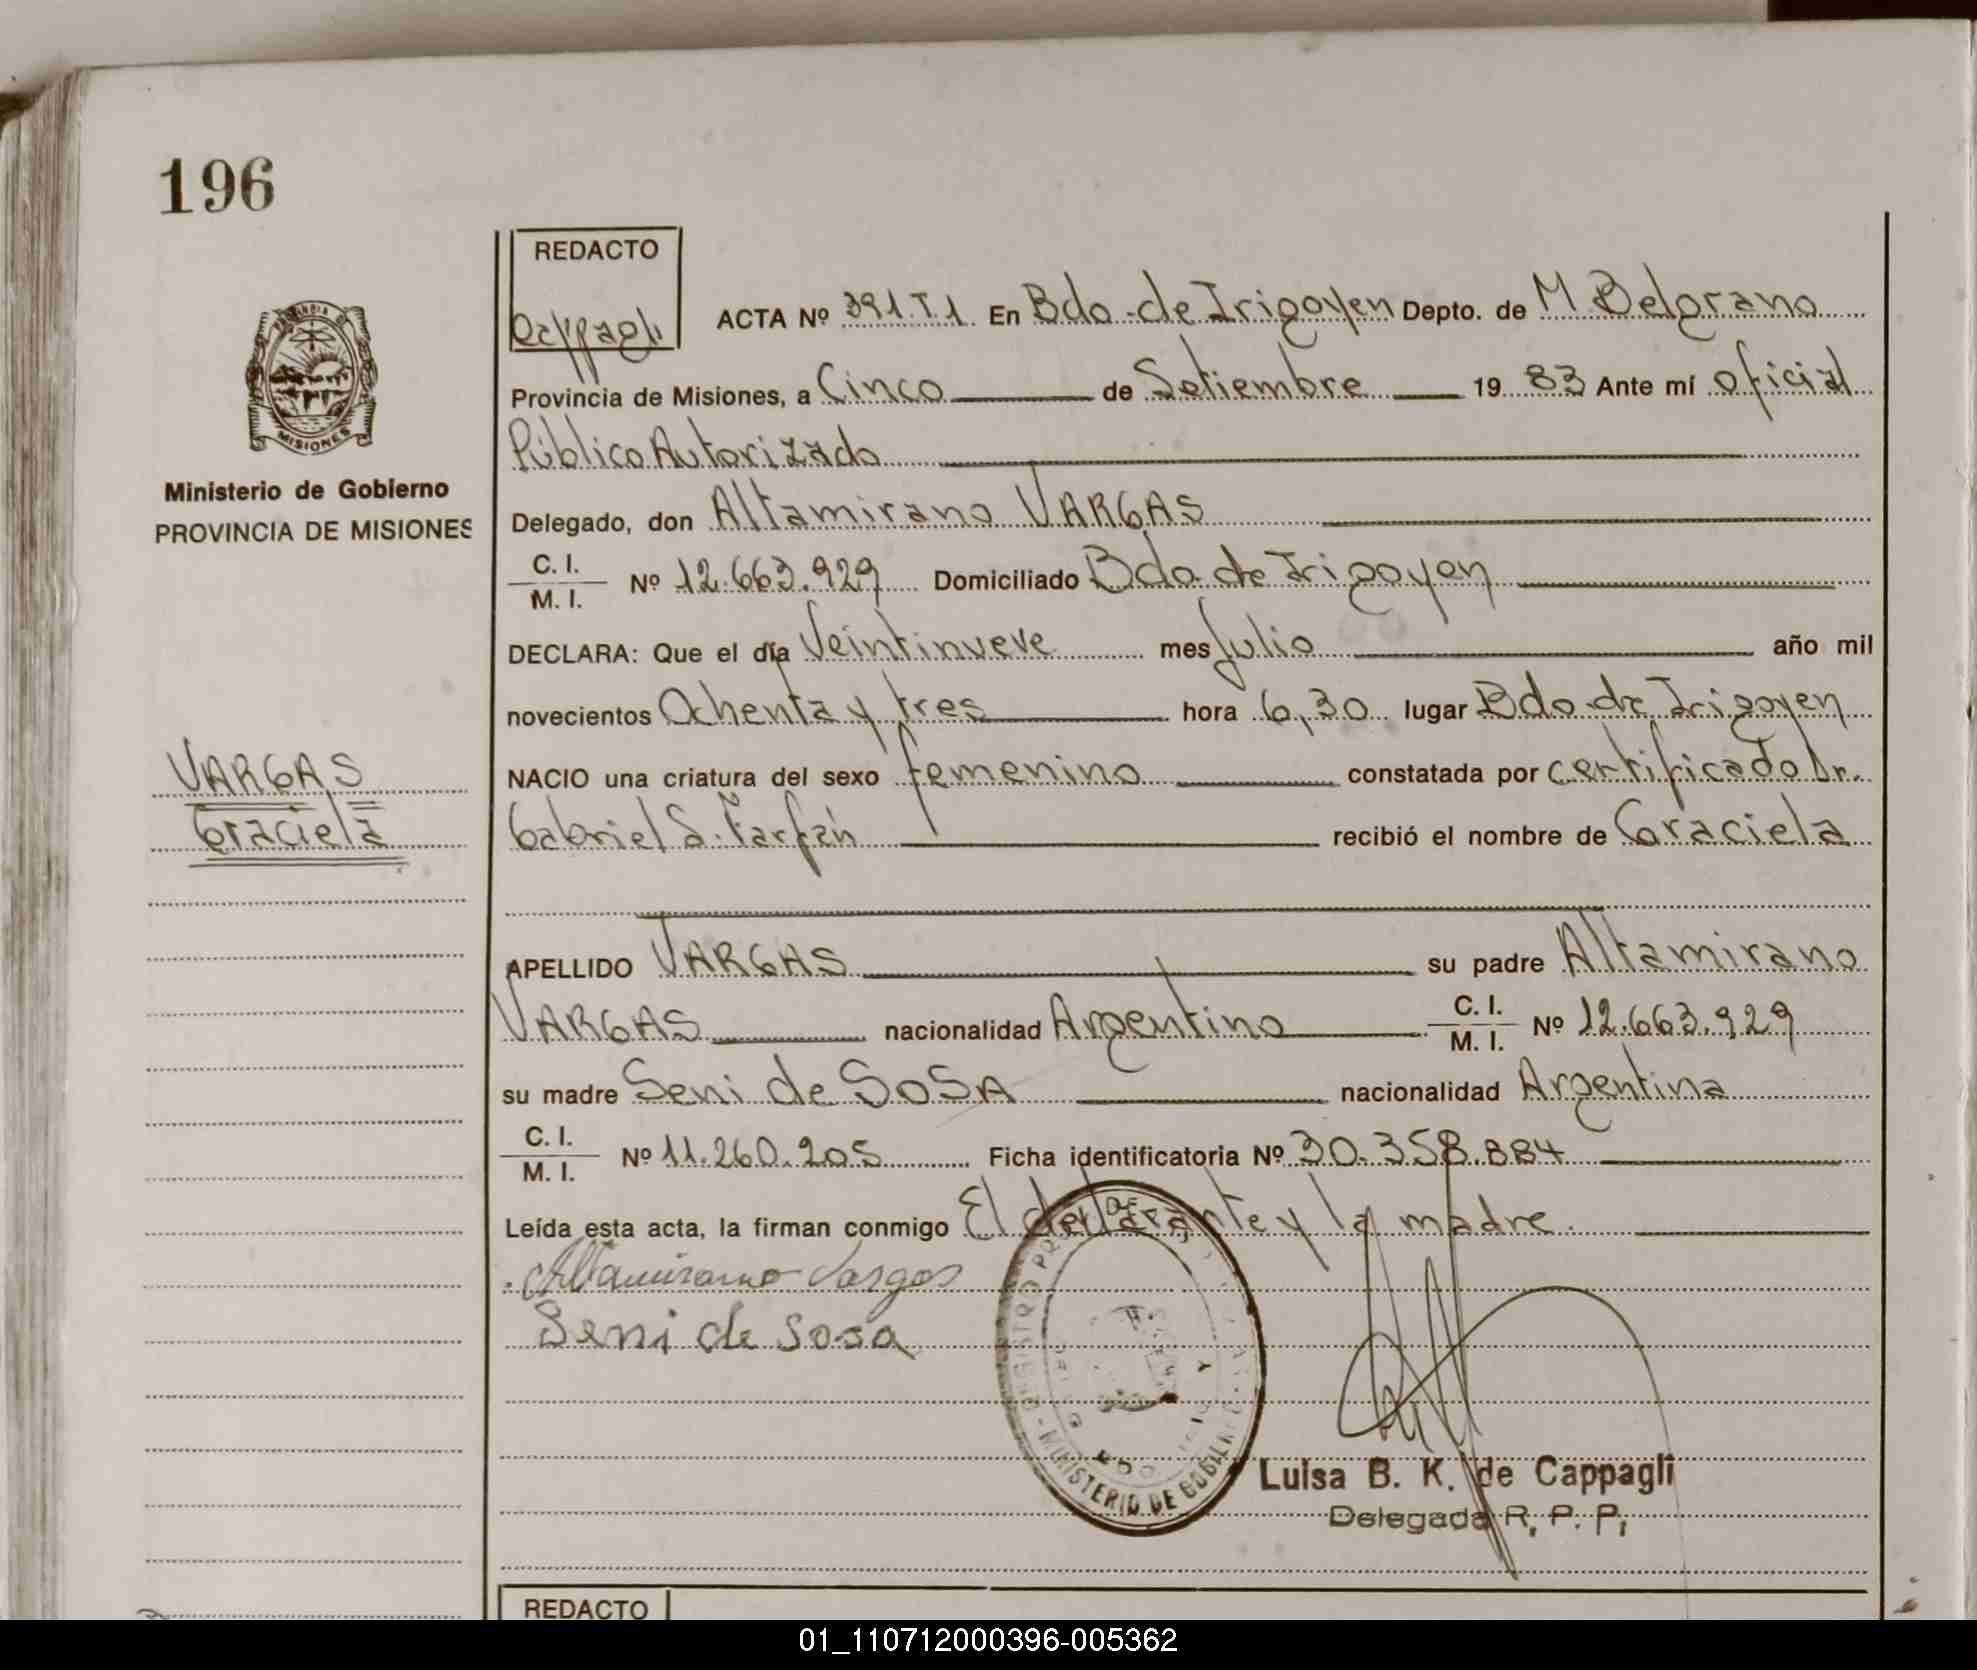 196
REDACTO
Cappagli
ACTA Nº 391.T1. En Bdo. de Irigoyen Depto. de M Belgrano
Provincia de Misiones, a Cinco de Setiembre 19 83 Ante mí oficial
Público Autorizado
Delegado, don Altamirano VARGAS
C. I.
M. I. Nº 12.663.929 Domiciliado Bdo. de Irigoyen
DECLARA: Que el día Veintinueve mes Julio año mil
novecientos Ochenta y tres hora 6,30 lugar Bdo. de Irigoyen
NACIO una criatura del sexo femenino constatada por certificado Dr.
Gabriel S. Farfán recibió el nombre de Graciela
APELLIDO VARGAS su padre Altamirano
VARGAS nacionalidad Argentino C. I.
M. I. Nº 12.663.929
su madre Seni de SOSA nacionalidad Argentina
C. I.
M. I. Nº 11.260.205 Ficha identificatoria Nº 30.358.884
Leída esta acta, la firman conmigo El declarante y la madre.
Altamirano Vargas
Seni de Sosa
MINISTERIO DE GOBIERNO
Luisa B. K. de Cappagli
Delegada R. P. P.
REDACTO
MISIONES
Ministerio de Gobierno
PROVINCIA DE MISIONES
VARGAS
Graciela
01_110712000396-005362